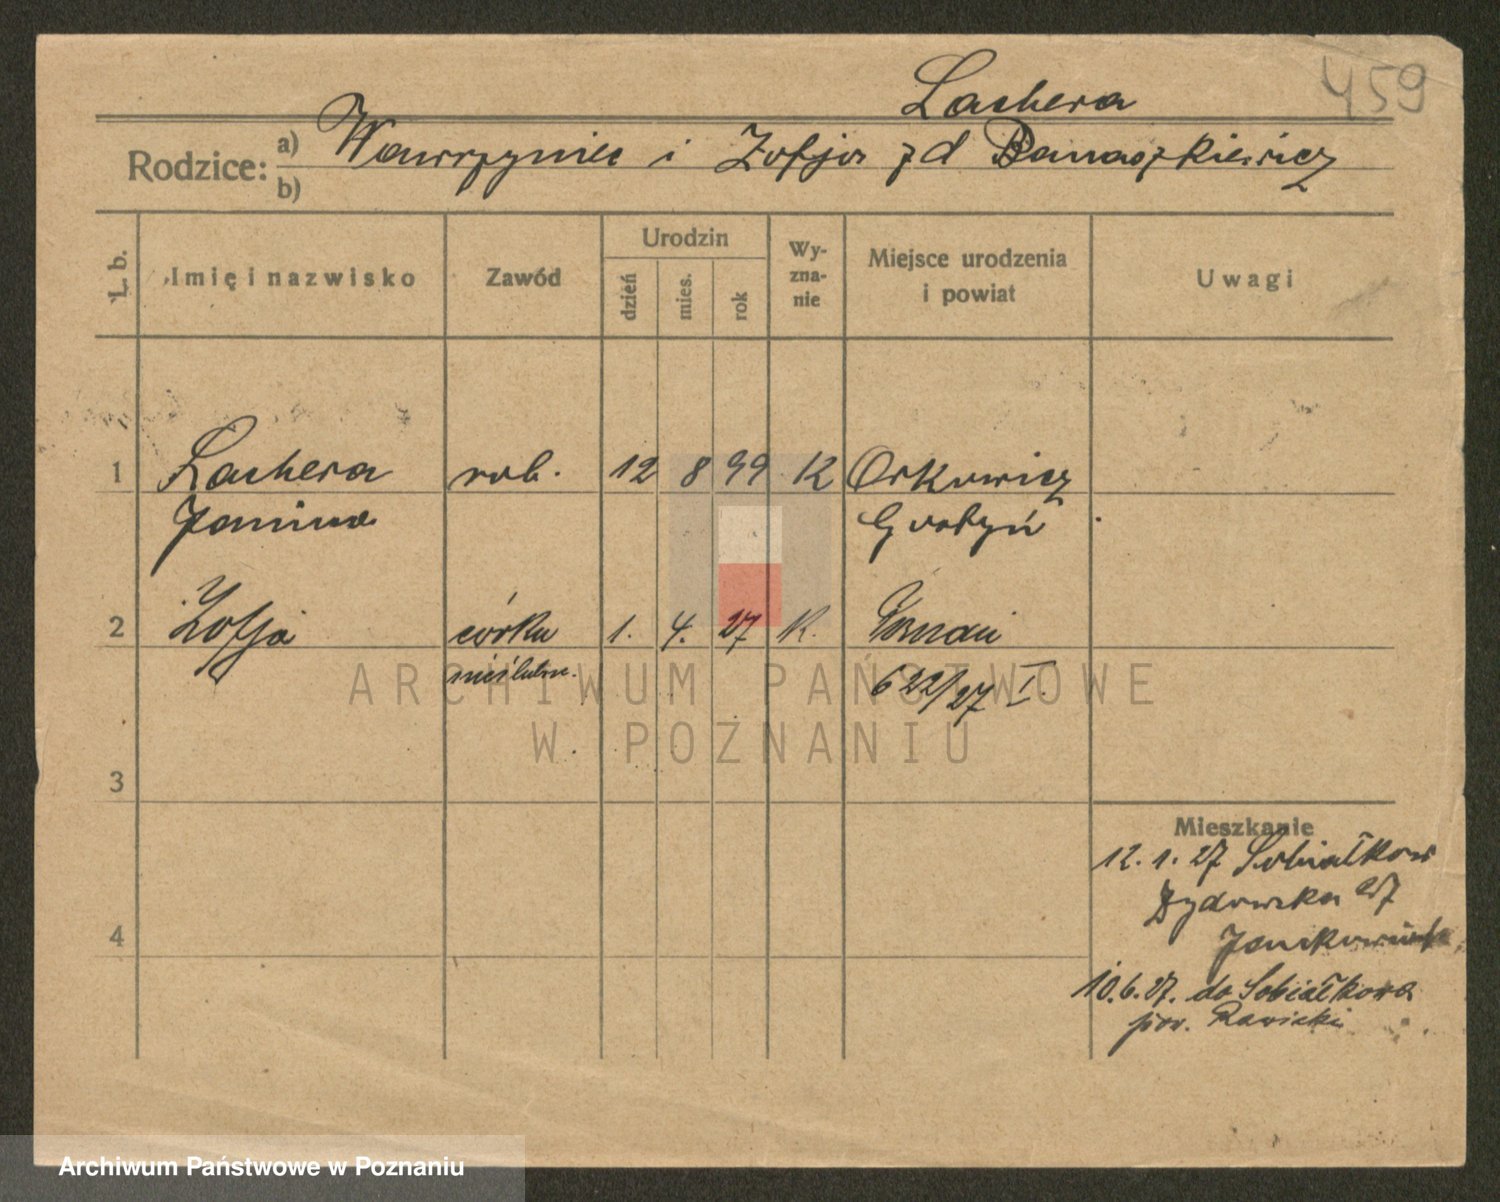 459
Lachera
Rodzice: a) Wawrzyniec i Zofja z d Banaszkiewicz
b)
L. b.
Imię i nazwisko
Zawód
Urodzin
dzień
mies.
rok
Wy-
zna-
nie
Miejsce urodzenia
i powiat
Uwagi
1 Lachera rob. 12 8 99 K
Janina Gostyń
2 Zofja córka 1. 4. 27 K. Poznań
nieślubna. 622/27 I.
3
4
Mieszkanie
12. 1. 27 Sobiałkow
27
10.6.27. do Sobiałkowa
pow. Rawicki
ARCHIWUM PAŃSTWOWE
W POZNANIU
Archiwum Państwowe w Poznaniu